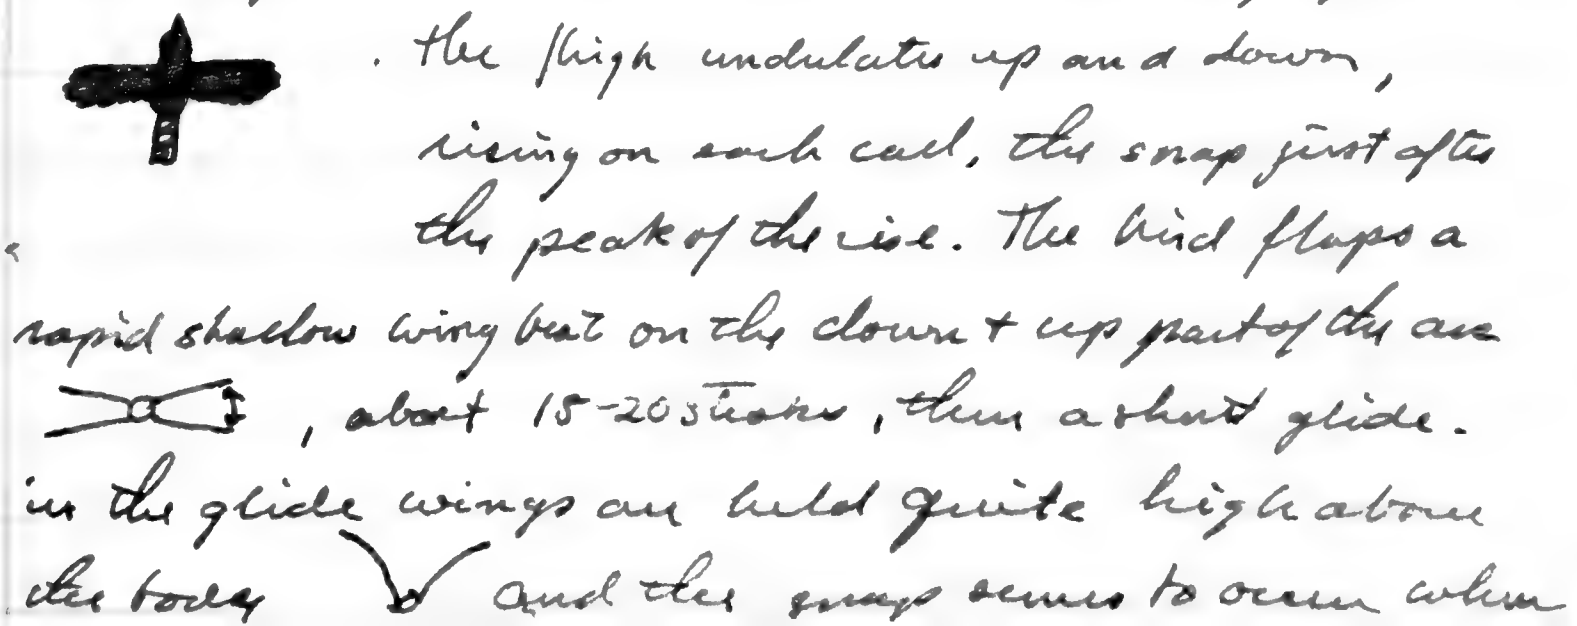 . The flight undulates up and down,
rising on each call, the snap just after
the peak of the rise. The bird flaps a
rapid shallow wing beat on the down + up part of the arc
, about 15-20 strokes, then a short glide.
in the glide wings are held quite high above
the body and the snap seems to occur when